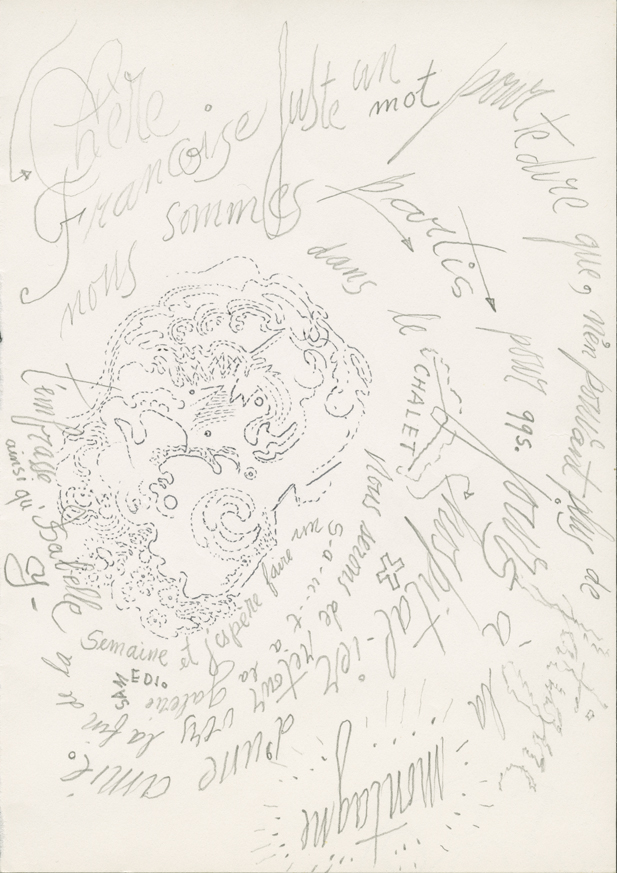 Chère
Françoise juste un mot pour te dire que, n'en pouvant plus de
nous sommes partis pour qqs. jours à la
montagne
dans le CHALET hospital-ier
d'une amie.
Nous serons de retour vers la fin
Semaine et j'espère faire un
s-a-u-t à la galerie
SAMEDI.
t'embrasse
ainsi qu'Isabelle
Gy-